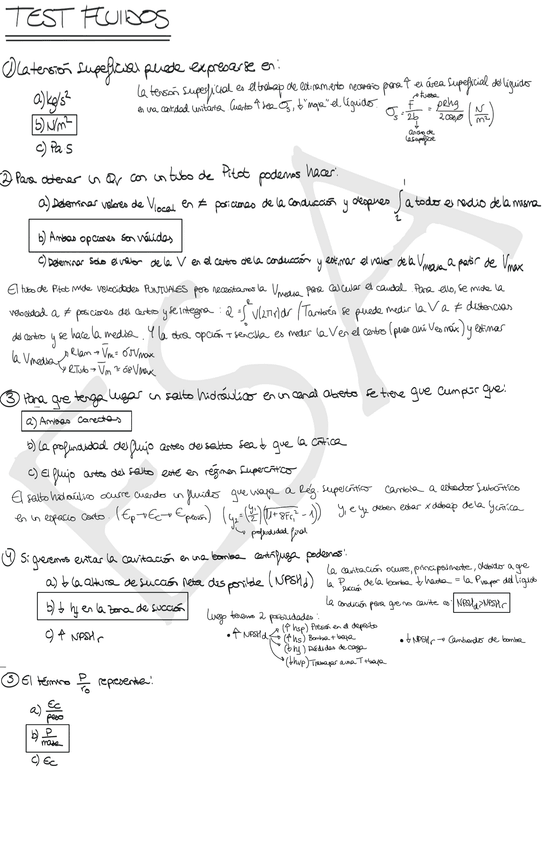 TEST FLUIDOS
① La tensión superficial puede expresarse en:
a) kg/s²
b) N/m²
c) Pa s
La tensión superficial es el trabajo de estiramiento necesario para ↑ el área superficial del líquido
en una cantidad unitaria. Cuanto ↑ sea σs, ↓ "moja" el líquido σs = F/2b = ρRhg/2cosθ (N/m²)
② Para obtener un Qv con un tubo de Pitot podemos hacer:
a) Determinar valores de Vlocal en ≠ posiciones de la conducción y después ∫ a todo el radio de la misma
b) Ambas opciones son válidas
c) Determinar solo el valor de la V en el centro de la conducción y estimar el valor de la Vmedia a partir de Vmax
El tubo de Pitot mide velocidades PUNTUALES pero necesitamos la Vmedia para calcular el caudal. Para ello, se mide la
velocidad a ≠ posiciones del centro y se integra: Q = ∫ V(2πr)dr / También se puede medir la V a ≠ distancias
del centro y se hace la media. Y la otra opción + sencilla es medir la V en el centro (pues ahí V es máx) y estimar
la Vmedia
R Lam → Vm = 0'5Vmax
R Tub → Vm ≈ 0'8Vmax
③ Para que tenga lugar un salto hidráulico en un canal abierto se tiene que cumplir que:
a) Ambas correctas
b) La profundidad del flujo antes del salto sea ↓ que la crítica
c) El flujo antes del salto esté en régimen supercrítico
El salto hidráulico ocurre cuando un fluido que viaja a Rég. supercrítico cambia a estado subcrítico
en un espacio corto. (Ep → Ec → Epresión) (y2 = (y1/2)(√1+8Fr1² - 1)) y1 e y2 deben estar x debajo de la ycrítica
profundidad final
④ Si queremos evitar la cavitación en una bomba centrífuga podemos:
a) ↓ la altura de succión neta disponible (NPSHd)
b) ↓ hf en la zona de succión
c) ↑ NPSHr
La cavitación ocurre, principalmente, debido a que
la Psucción de la bomba ↓ hasta = la Pvapor del líquido
La condición para que no cavite es: NPSHd>NPSHr
Luego tenemos 2 posibilidades:
• ↑ NPSHd
(↑ hsp) Presión en el depósito
(↑ hs) Bomba + baja
(↓ hf) Pérdidas de carga
(↓ hvp) Trabajar a una T + baja
• ↓ NPSHr → Cambiando de bomba
⑤ El término P/ρ representa:
a) Ec/peso
b) P/masa
c) Ec
ESA